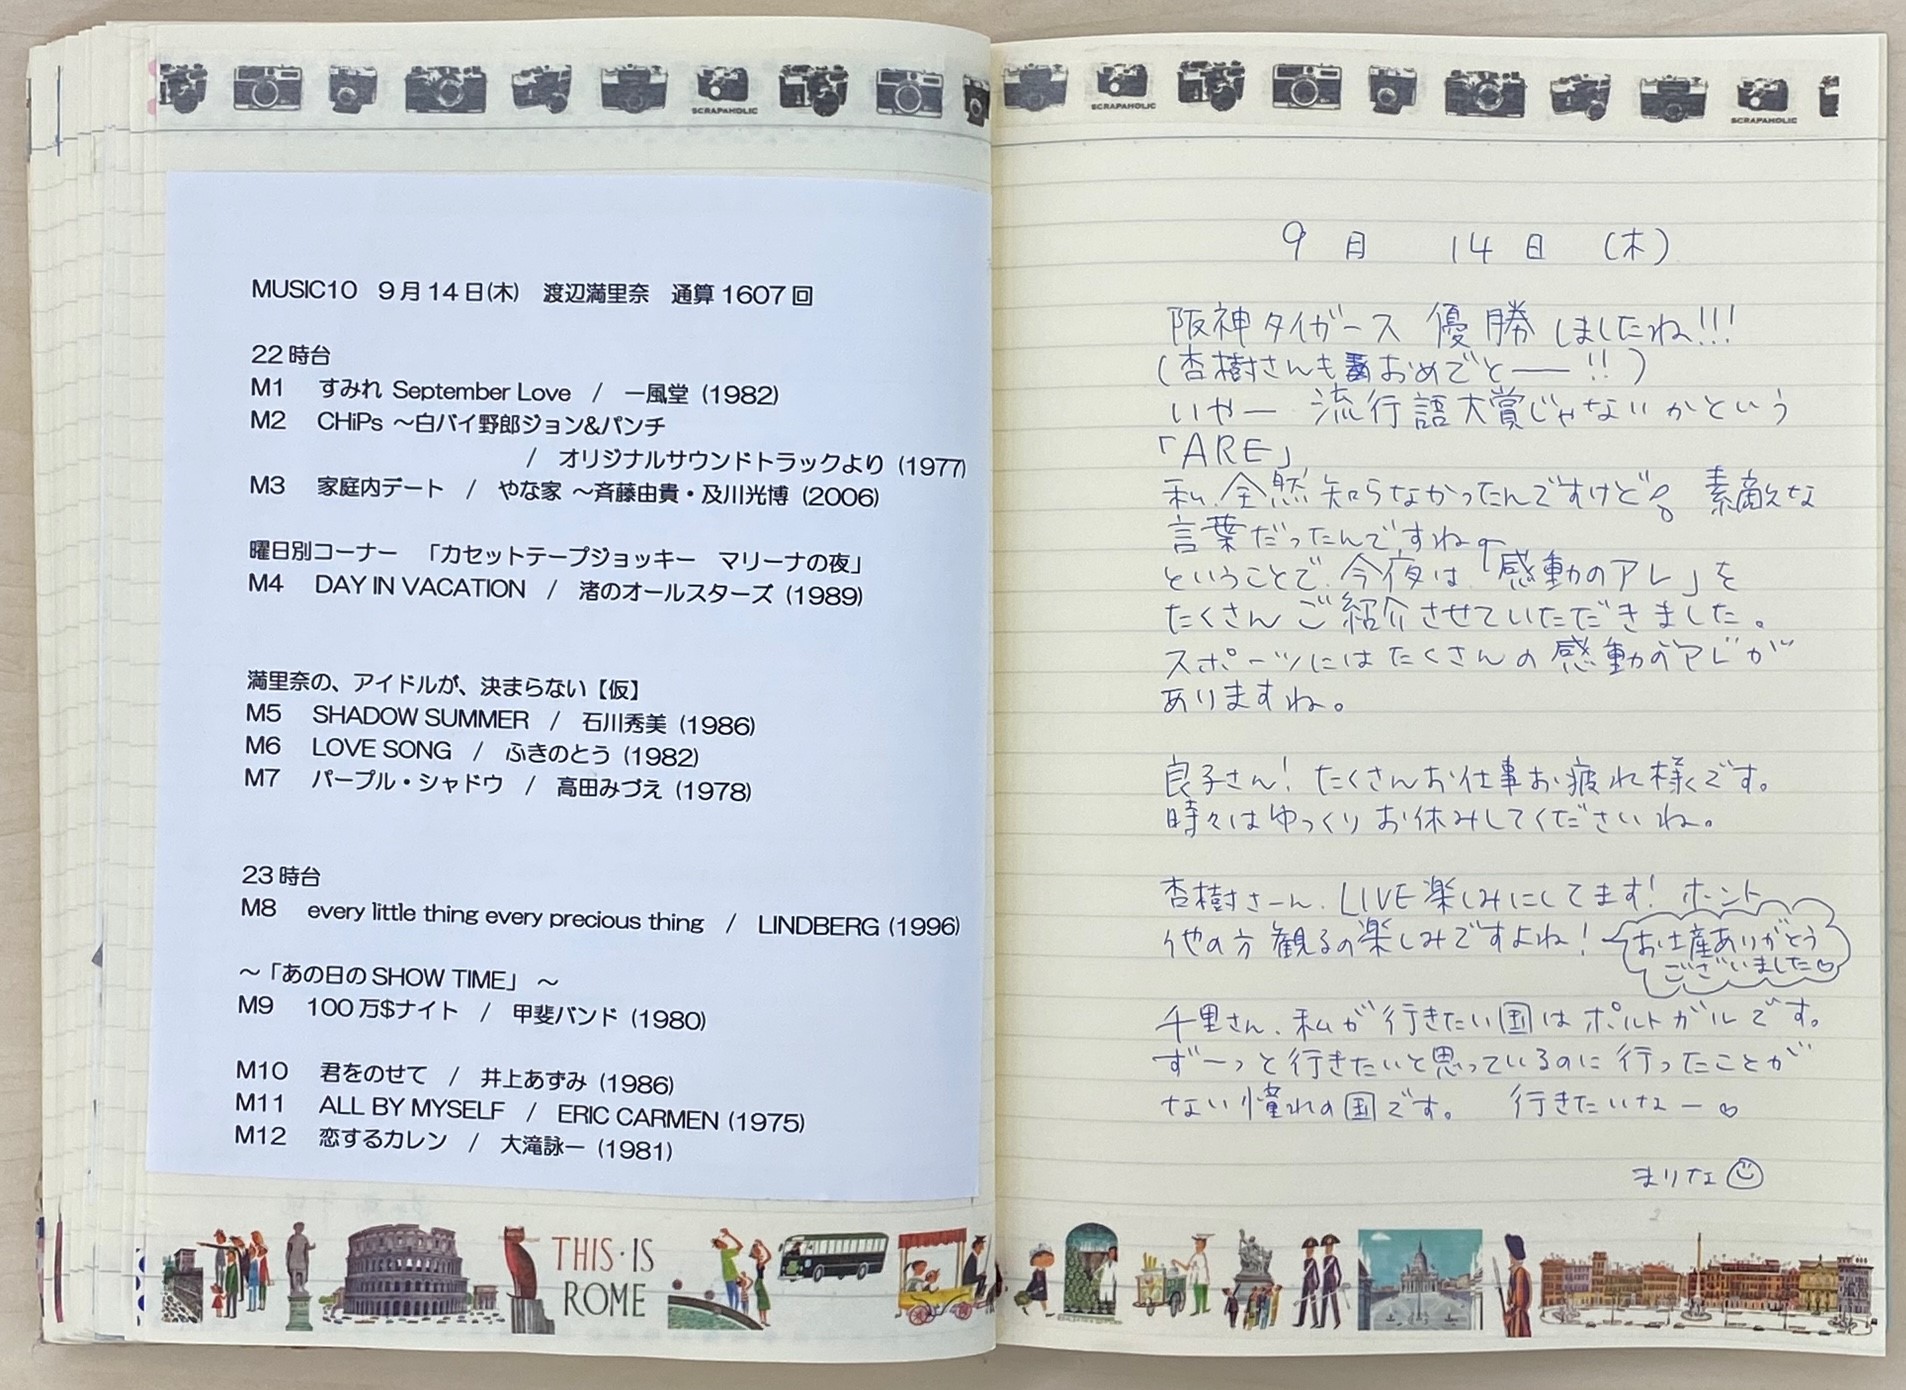 SCRAPAHOLIC
MUSIC10　9月14日(木)　渡辺満里奈　通算1607回
22時台
M1　すみれ September Love　/　一風堂 (1982)
M2　CHiPs ～白バイ野郎ジョン&パンチ
/　オリジナルサウンドトラックより (1977)
M3　家庭内デート　/　やな家 ～斉藤由貴・及川光博 (2006)
曜日別コーナー　「カセットテープジョッキー　マリーナの夜」
M4　DAY IN VACATION　/　渚のオールスターズ (1989)
満里奈の、アイドルが、決まらない【仮】
M5　SHADOW SUMMER　/　石川秀美 (1986)
M6　LOVE SONG　/　ふきのとう (1982)
M7　パープル・シャドウ　/　高田みづえ (1978)
23時台
M8　every little thing every precious thing　/　LINDBERG (1996)
～「あの日のSHOW TIME」～
M9　100万$ナイト　/　甲斐バンド (1980)
M10　君をのせて　/　井上あずみ (1986)
M11　ALL BY MYSELF　/　ERIC CARMEN (1975)
M12　恋するカレン　/　大滝詠一 (1981)
THIS・IS
ROME
SCRAPAHOLIC
SCRAPAHOLIC
9月　14日　(木)
阪神タイガース 優勝しましたね!!!
(杏樹さんもおめでとー!!)
いやー 流行語大賞じゃないかという
「ARE」
私、全然知らなかったんですけど。素敵な
言葉だったんですね。
ということで、今夜は「感動のアレ」を
たくさんご紹介させていただきました。
スポーツにはたくさんの感動の"アレ"が
ありますね。
良子さん! たくさんお仕事お疲れ様です。
時々はゆっくりお休みしてくださいね。
杏樹さーん、LIVE楽しみにしてます! ホント
他の方観るの楽しみですよね!
お土産ありがとう
ございました♡
千里さん、私が行きたい国はポルトガルです。
ずーっと行きたいと思っているのに行ったことが
ない憧れの国です。　行きたいなー♡
まりな